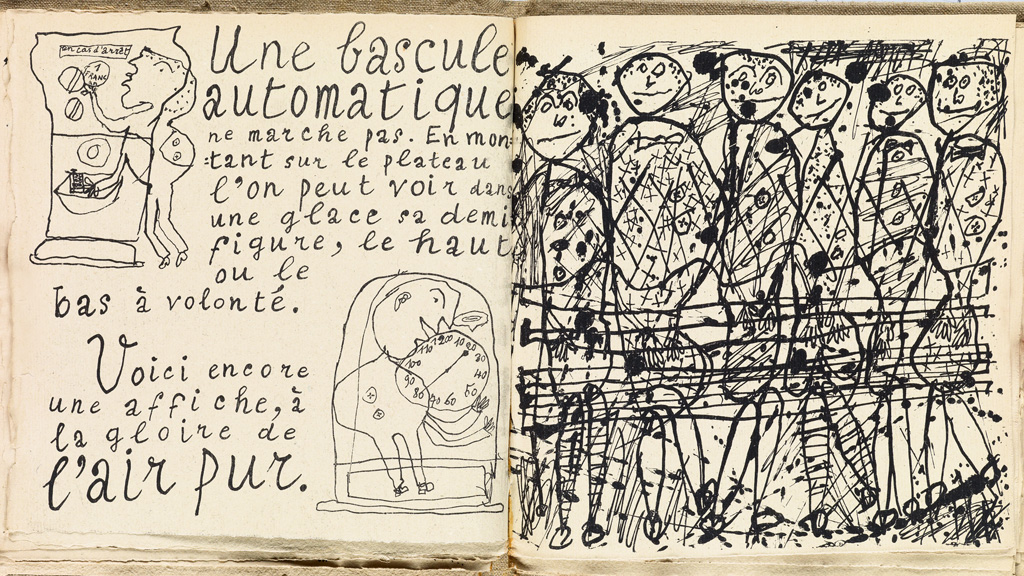 en cas d'arrêt
Une bascule
automatique
ne marche pas. En mon-
tant sur le plateau
l'on peut voir dans
une glace sa demi
figure, le haut
ou le
bas à volonté.
110 200 10 20
100 30
90 40
80 70 60 50
Voici encore
une affiche, à
la gloire de
l'air pur.